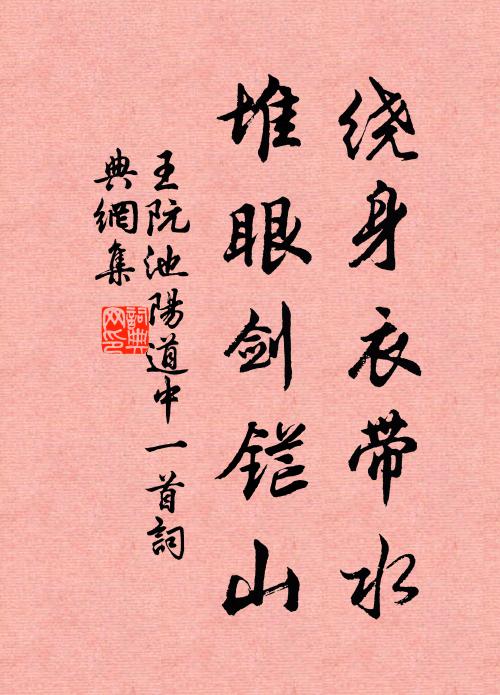 绕身衣带水
堆眼剑铓山
王阮池陽道中一首詞
典網集
詞典网印